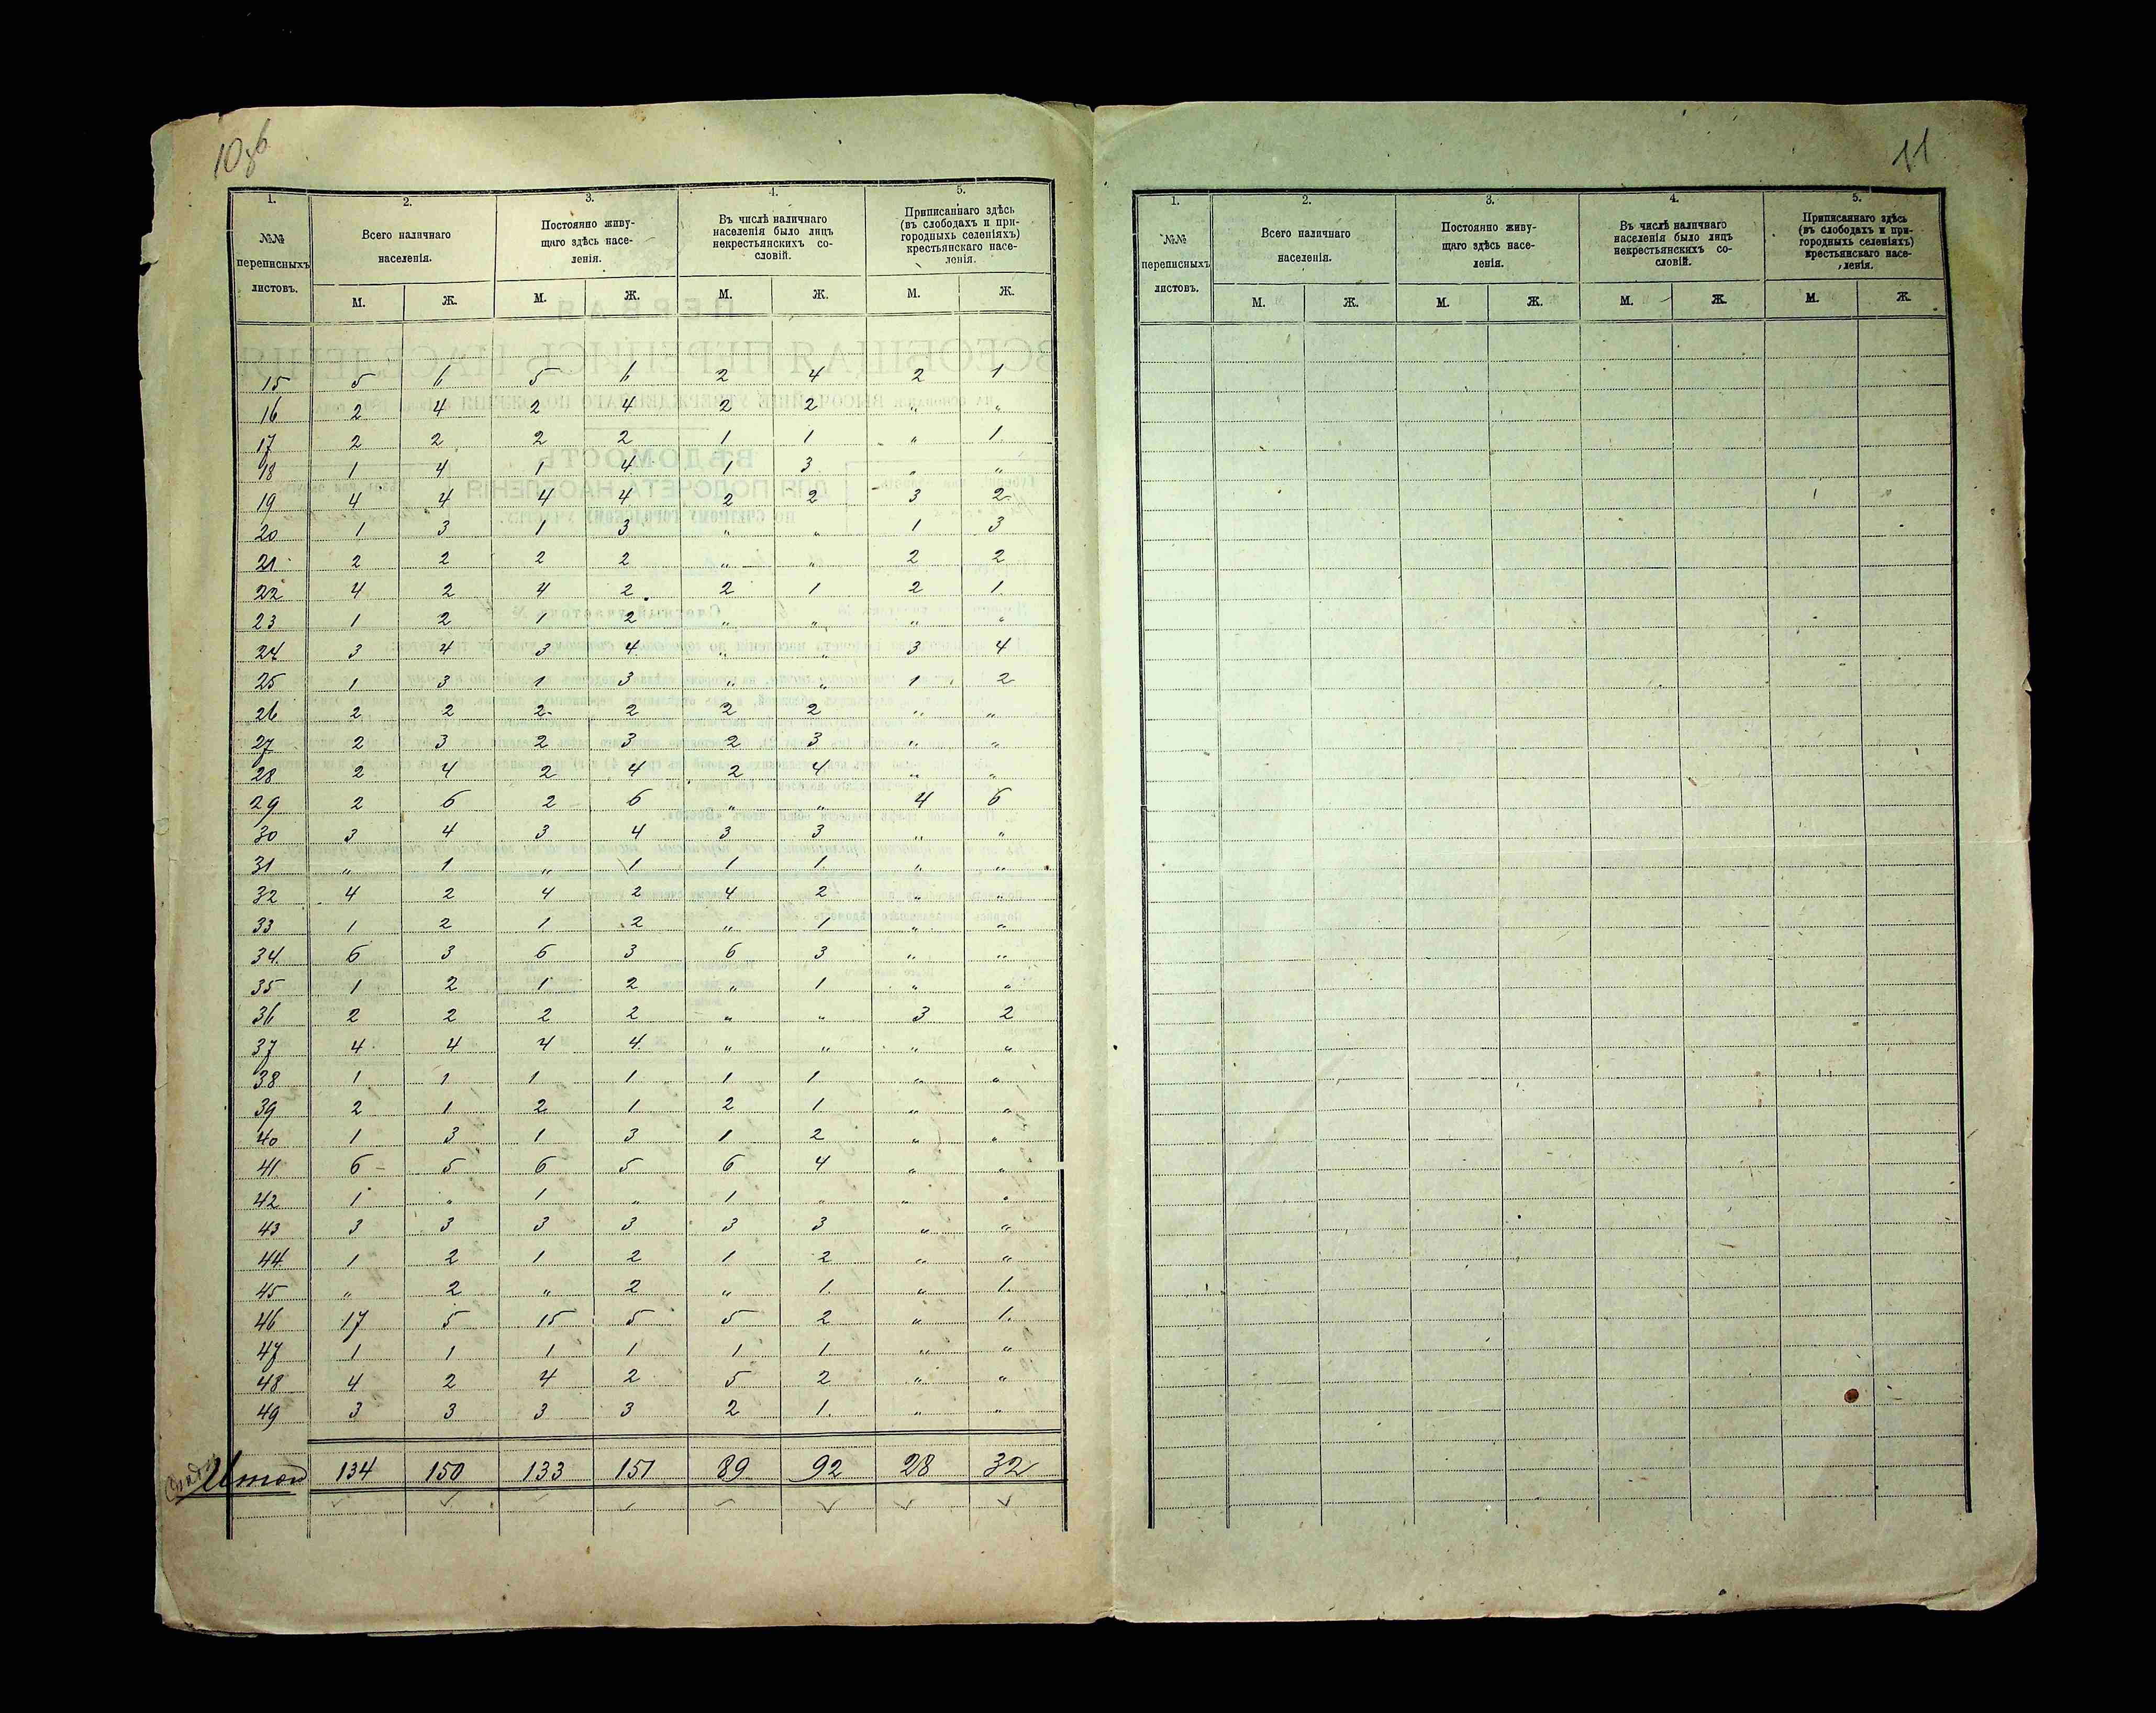 10об
1. 2. 3. 4. 5.
№№ переписныхъ листовъ. Всего наличнаго населенія. Постоянно живущаго здѣсь населенія. Въ числѣ наличнаго населенія было лицъ некрестьянскихъ сословій. Приписаннаго здѣсь (въ слободахъ и пригородныхъ селеніяхъ) крестьянскаго населенія.
М. Ж. М. Ж. М. Ж. М. Ж.
15 5 6 5 6 2 4 2 1
16 2 4 2 4 2 2 " "
17 2 2 2 2 1 1 " 1
18 1 4 1 4 1 3 " "
19 4 4 4 4 2 2 3 2
20 1 3 1 3 " " 1 3
21 2 2 2 2 " " 2 2
22 4 2 4 2 2 1 2 1
23 1 2 1 2 " " " "
24 3 4 3 4 " " 3 4
25 1 3 1 3 " " 1 2
26 2 2 2 2 2 2 " "
27 2 3 2 3 2 3 " "
28 2 4 2 4 2 4 " "
29 2 6 2 6 " " 4 6
30 3 4 3 4 3 3 " "
31 " 1 " 1 1 1 " "
32 4 2 4 2 4 2 " "
33 1 2 1 2 " 1 " "
34 6 3 6 3 6 3 " "
35 1 2 1 2 " 1 " "
36 2 2 2 2 " " 3 2
37 4 4 4 4 " " " "
38 1 1 1 1 1 1 " "
39 2 1 2 1 2 1 " "
40 1 3 1 3 1 2 " "
41 6 5 6 5 6 4 " "
42 1 " 1 " 1 " " "
43 3 3 3 3 3 3 " "
44 1 2 1 2 1 2 " "
45 " 2 " 2 " 1 " 1
46 17 5 15 5 5 2 " 1
47 1 1 1 1 1 1 " "
48 4 2 4 2 5 2 " "
49 3 3 3 3 2 1 " "
Итого 134 150 133 151 89 92 28 32
11
1. 2. 3. 4. 5.
№№ переписныхъ листовъ. Всего наличнаго населенія. Постоянно живущаго здѣсь населенія. Въ числѣ наличнаго населенія было лицъ некрестьянскихъ сословій. Приписаннаго здѣсь (въ слободахъ и пригородныхъ селеніяхъ) крестьянскаго населенія.
М. Ж. М. Ж. М. Ж. М. Ж.